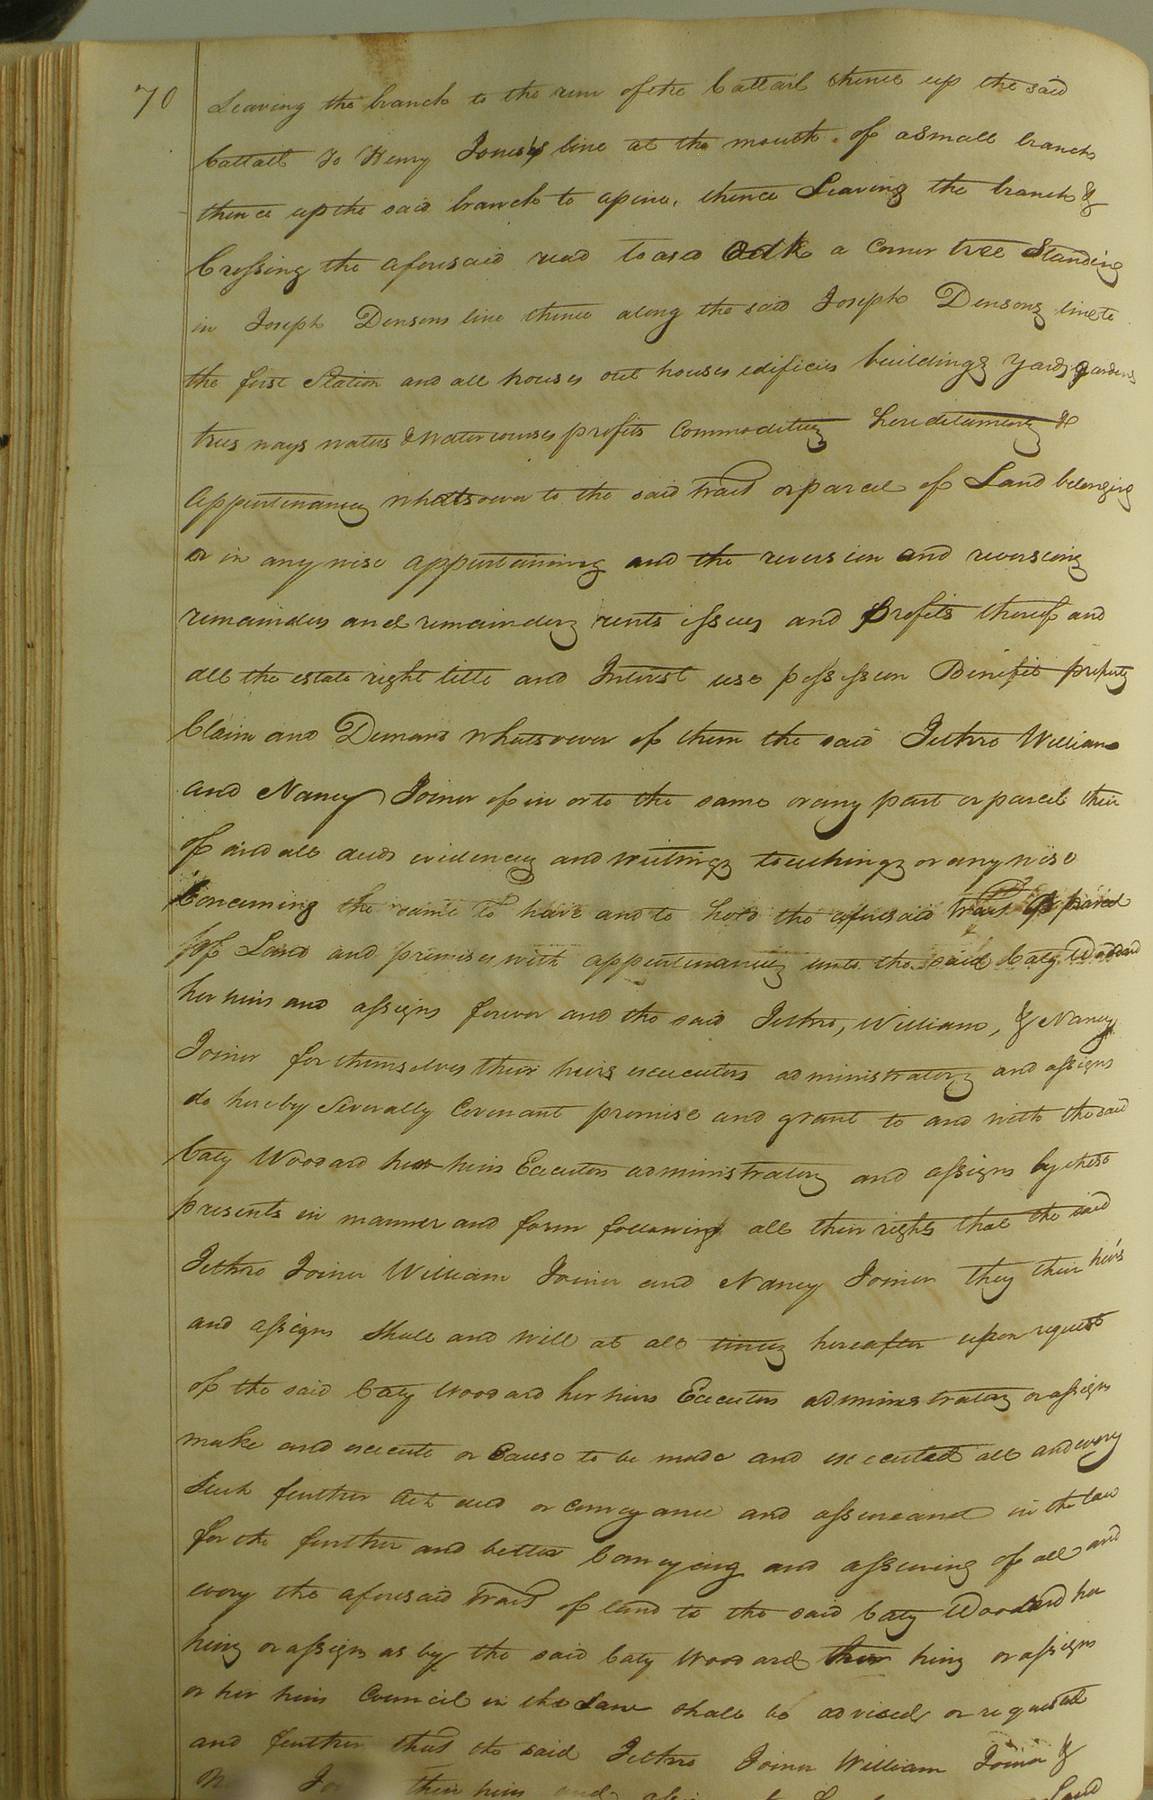 70
Leaving the branch to the run of the Cattail thence up the said
Cattail To Henry Jones's line at the mouth of a small branch
thence up the said branch to a pine, thence Leaving the branch &
Crossing the aforesaid road to a red oak a Corner tree Standing
in Joseph Densons line thence along the said Joseph Densons line to
the first Station and all houses out houses edifices buildings yards gardens
trees ways waters & water courses profits Commodities hereditaments &
appurtenances whatsoever to the said tract or parcel of Land belonging
or in any wise appertaining and the reversion and reversions
remainder and remainders rents issues and profits thereof and
all the estate right title and Interest use possession Benefit property
Claim and Demand whatsoever of them the said Jethro William
and Nancy Joiner of in or to the same or any part or parcel their
of and all deeds evidences and writings touchings or any wise
Concerning the same To have and to hold the aforesaid tract or parcel
of Land and premises with appurtenances unto the said Caty Woodard
her heirs and assigns forever and the said Jethro, William, & Nancy
Joiner for themselves their heirs executors administrators and assigns
do hereby Severally Covenant promise and grant to and with the said
Caty Woodard her heirs Executors administrators and assigns by these
presents in manner and form following all their rights that the said
Jethro Joiner William Joiner and Nancy Joiner they their heirs
and assigns shall and will at all times hereafter upon request
of the said Caty Woodard her heirs Executors administrators or assigns
make and execute or Cause to be made and executed all and every
Such further act deed or conveyance and assurance in the law
for the further and better Conveying and assuring of all and
every the aforesaid tract of land to the said Caty Woodard her
heirs or assigns as by the said Caty Woodard heirs or assigns
or her heirs Council in the Law shall be advised or requested
and further that the said Jethro Joiner William Joiner &
their heirs and